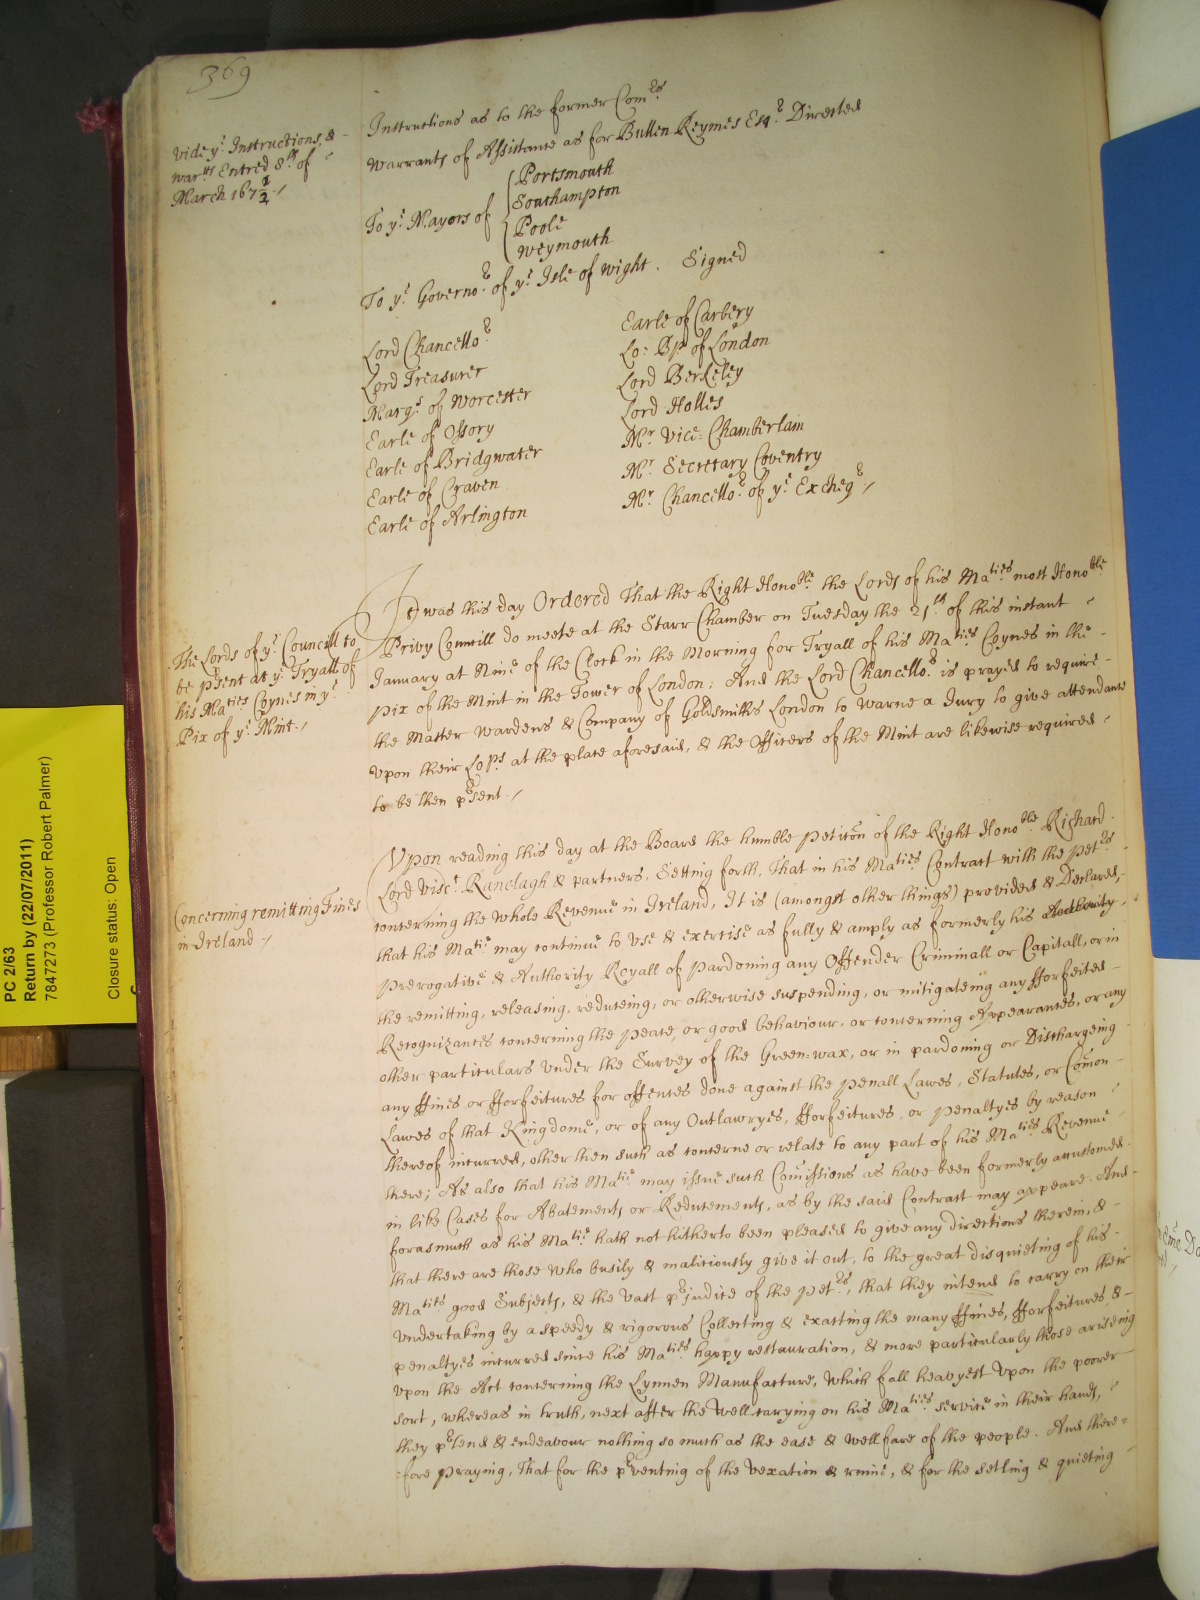 369
Instructions as to the former Com:rs
Warrants of Assistance as for Bullen Reymes Esq.r Directed
Vide y.e Instructions, &
war.ts Entred 8.th of
March 167 1/2
To y.e Mayors of
Portsmouth
Southampton
Poole
Weymouth
To y.e Governo.r of y.e Isle of Wight. Signed
Lord Chancello.r
Lord Treasurer
Marq.s of Worcester
Earle of Ossory
Earle of Bridgwater
Earle of Craven
Earle of Arlington
Earle of Carbery
Lo: Bp of London
Lord Berkeley
Lord Holles
M.r Vice: Chamberlain
M.r Secretary Coventry
M.r Chancello.r of y.e Excheq.r
The Lords of y.e Councill to
be p'sent at y.e Tryall of
his Ma.ties Coynes in y.e
Pix of y.e Mint.
It was this day Ordered That the Right Hono.ble the Lords of his Ma.ties most Hono.ble
Privy Councill do meete at the Starr Chamber on Tuesday the 21.th of this instant
January at Nine of the Clock in the Morning for Tryall of his Ma.ties Coynes in the
pix of the Mint in the Tower of London: And the Lord Chancello.r is prayed to require
the Master Wardens & Company of Goldsmiths London to warne a Jury to give attendance
upon their Lo.ps at the place aforesaid, & the Officers of the Mint are likewise required
to be then p'sent.
Concerning remitting Fines
in Ireland
Upon reading this day at the Board the humble petiton of the Right Hono.ble Richard
Lord Visc.t Ranelagh & partners, Setting forth, That in his Ma.ties Contract with the pet.rs
concerning the whole Revenue in Ireland, It is (amongst other things) provided & Declared,
that his Ma.tie may continue to use & exercise as fully & amply as formerly his Authority
prerogative & Authority Royall of pardoning any Offender Criminall or Capitall, or in
the remitting, releasing, reduceing, or otherwise suspending, or mitigateing any fforfeited
Recognizances concerning the peace, or good behaviour, or concerning Appearances, or any
other particulars under the Survey of the Green=wax, or in pardoning or Dischargeing
any ffines or fforfeitures for offences done against the penall Lawes, Statutes, or Comon
Lawes of that Kingdome, or of any Outlawryes, fforfeitures, or penaltyes by reason
thereof incurred, other then such as concerne or relate to any part of his Ma.ties Revenue
there; As also that his Ma.tie may issue such Comissions as have been formerly accustomed
in like Cases for Abatements or Reducements, as by the said Contract may appeare. And
forasmuch as his Ma.tie hath not hitherto been pleased to give any directions therein, &
that there are those who busily & maliciously give it out, to the great disquieting of his
Ma.ties good Subjects, & the vast p'judice of the pet.rs, that they intend to carry on their
undertaking by a speedy & rigorous Collecting & exacting the many ffines, fforfeitures &
penaltyes incurred since his Ma.ties happy restauration, & more particularly those ariseing
upon the Act concerning the Lynnen Manufacture, which fall heavyest upon the poorer
sort, whereas in truth, next after the well carying on his Ma.ties service in their hands,
they p'tend & endeavour nothing so much as the ease & wellfare of the people. And there=
=fore praying, That for the p'venting of the vexation & ruine, & for the setling & quieting
PC 2/63
Return by (22/07/2011)
7847273 (Professor Robert Palmer)
Closure status: Open